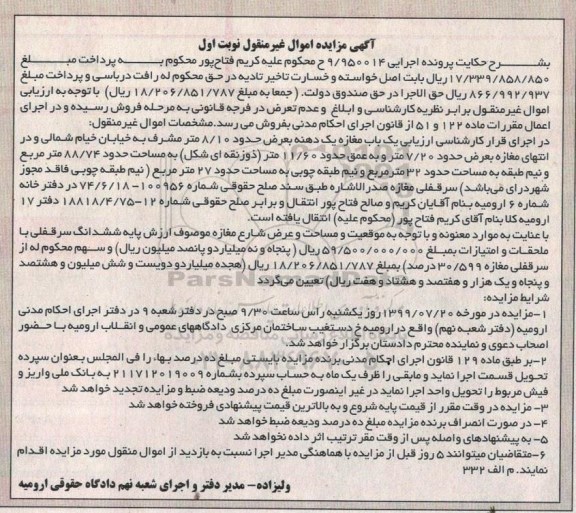 آگهی مزایده اموال غیرمنقول نوبت اول
بشرح حکایت پرونده اجرایی ۹/۹۵۰۰۱۴ ح محکوم علیه کریم فتاح‌پور محکوم به پرداخت مبلغ
۱۷/۳۳۹/۸۵۸/۸۵۰ ریال بابت اصل خواسته و خسارت تاخیر تادیه در حق محکوم له رافت درباسی و پرداخت مبلغ
۸۶۶/۹۹۲/۹۳۷ ریال حق الاجرا در حق صندوق دولت. ( جمعا به مبلغ ۱۸/۲۰۶/۸۵۱/۷۸۷ ریال) با توجه به ارزیابی
اموال غیرمنقول برابر نظریه کارشناسی و ابلاغ و عدم تعرض در فرجه قانونی به مرحله فروش رسیده و در اجرای
اعمال مقررات ماده ۱۲۲ و ۵۱ از قانون اجرای احکام مدنی بفروش می رسد.مشخصات اموال غیرمنقول:
در اجرای قرار کارشناسی ارزیابی یک باب مغازه یک دهنه بعرض حدود ۸/۱۰ متر مشرف به خیابان خیام شمالی و در
انتهای مغازه بعرض حدود ۷/۲۰ متر و به عمق حدود ۱۱/۶۰ متر (ذوزنقه ای شکل) به مساحت حدود ۸۸/۷۴ متر مربع
و نیم طبقه به مساحت حدود ۳۲ مترمربع و نیم طبقه چوبی به مساحت حدود ۲۷ متر مربع ( نیم طبقه چوبی فاقد مجوز
شهرداری می‌باشد) سرقفلی مغازه صدرالاشاره طبق سند صلح حقوقی شماره ۱۰۰۹۵۶-۷۴/۶/۱۸ در دفتر خانه
شماره ۶ ارومیه بنام آقایان کریم و صالح فتاح پور انتقال و برابر صلح حقوقی شماره ۱۲-۱۸۸۱۸/۴/۷۵ دفتر ۱۷
ارومیه کلا بنام آقای کریم فتاح پور (محکوم علیه) انتقال یافته است.
با عنایت به موارد معنونه و با توجه به موقعیت و مساحت و عرض شارع مغازه موصوف ارزش پایه ششدانگ سرقفلی با
ملحقات و امتیازات بمبلغ ۵۹/۵۰۰/۰۰۰/۰۰۰ ریال ( پنجاه و نه میلیارد و پانصد میلیون ریال) و سهم محکوم له از
سرقفلی مغازه ۳۰/۵۹۹ درصد) بمبلغ ۱۸/۲۰۶/۸۵۱/۷۸۷ ریال (هجده میلیارد و دویست و شش میلیون و هشتصد
و پنجاه و یک هزار و هفتصد و هشتاد و هفت ریال) تعیین می‌گردد
شرایط مزایده:
۱-مزایده در مورخه ۱۳۹۹/۰۷/۲۰ روز یکشنبه راس ساعت ۹/۳۰ صبح در دفتر شعبه ۹ در دفتر اجرای احکام مدنی
ارومیه (دفتر شعبه نهم) واقع در ارومیه خ دستغیب ساختمان مرکزی دادگاههای عمومی و انقلاب ارومیه با حضور
اصحاب دعوی و نماینده محترم دادستان برگزار خواهد شد.
۲-بر طبق ماده ۱۲۹ قانون اجرای احکام مدنی برنده مزایده بایستی مبلغ ده درصد بها، را فی المجلس بعنوان سپرده
تحویل قسمت اجرا نماید و مابقی را ظرف یک ماه به حساب سپرده بشماره ۲۱۱۷۱۲۰۱۹۰۰۹ به بانک ملی واریز و
فیش مربوط را تحویل واحد اجرا نماید در غیر اینصورت مبلغ ده درصد ودیعه ضبط و مزایده تجدید خواهد شد
۳- مزایده در وقت مقرر از قیمت پایه شروع و به بالاترین قیمت پیشنهادی فروخته خواهد شد
۴- در صورت انصراف برنده مزایده مبلغ ده درصد ودیعه ضبط خواهد شد
۵- به پیشنهادهای واصله پس از وقت مقرر ترتیب اثر داده نخواهد شد
۶-متقاضیان میتوانند ۵ روز قبل از مزایده با هماهنگی مدیر اجرا نسبت به بازدید از اموال منقول مورد مزایده اقدام
نمایند. م الف ۳۳۲
ولیزاده- مدیر دفتر و اجرای شعبه نهم دادگاه حقوقی ارومیه